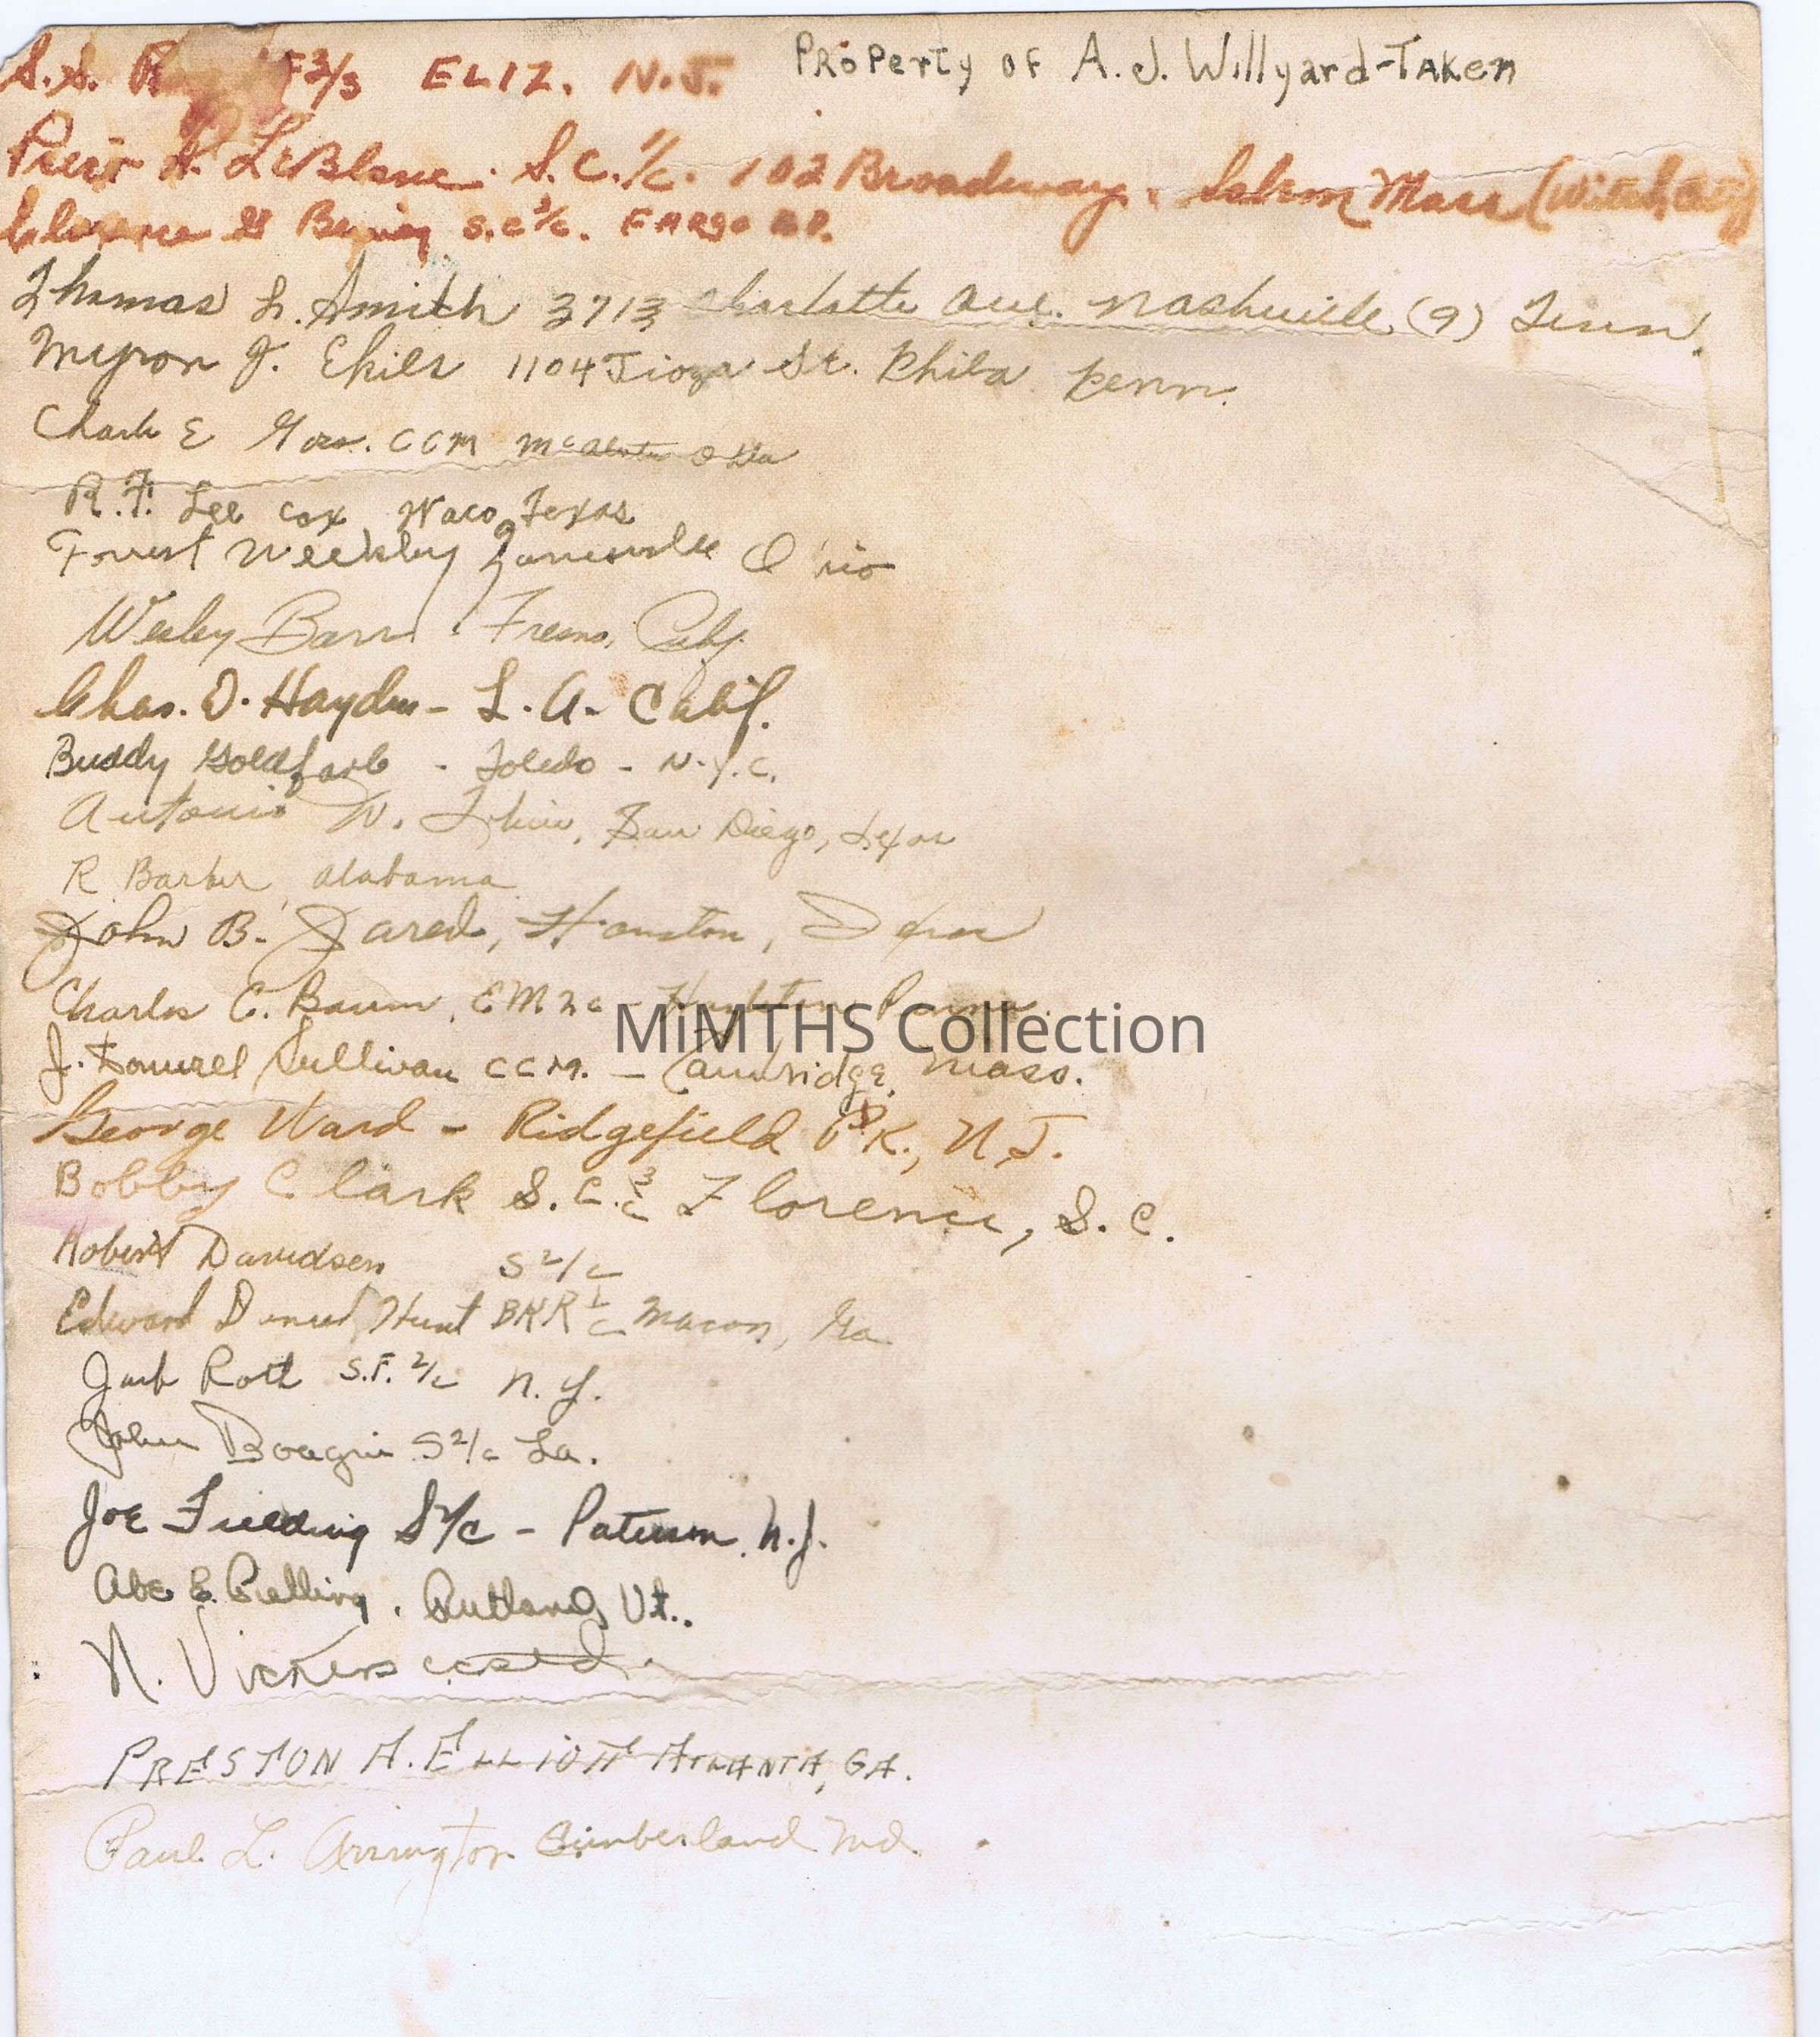 S.S. F 3/s ELIZ. N.J. Property of A.J. Willyard-Taken
A. LeBlanc. S.C. 1/c. 102 Broadway, Salem Mass (Witch City)
S.C. 3/c. FARGO N.D.
Thomas L. Smith 3713 Charlotte Ave. Nashville (9) Tenn.
Myron J. 1104 Tioga St. Phila Penn.
E CCM McAlester Okla
R.F. Lee Cox Waco, Texas
Forrest Weekley Zanesville Ohio
Wesley Barr. Fresno, Calif.
Chas. D. Hayden - L.A. Calif.
Buddy Goldfarb - Toledo - N.Y.C.
Antonio N. San Diego, Texas
R Barber Alabama
John B. Jared, Houston, Texas
Charles C. Baum, EM2c Penna.
MiMTHS Collection
J. Sullivan CCM. - Cambridge, Mass.
George Ward - Ridgefield PK., N.J.
Bobby Clark S.C. 3/c Florence, S.C.
Robert Davidsen S 2/c
Edward Hunt BKR 1/c Macon, Ga.
Jack Roth S.F. 2/c N.Y.
John S 2/c La.
Joe S 1/c - Paterson, N.J.
Abe E. Rutland, Vt..
N. Vickers
PRESTON A. ELLIOTT ATLANTA, GA.
Paul L. Arrington Cumberland Md.